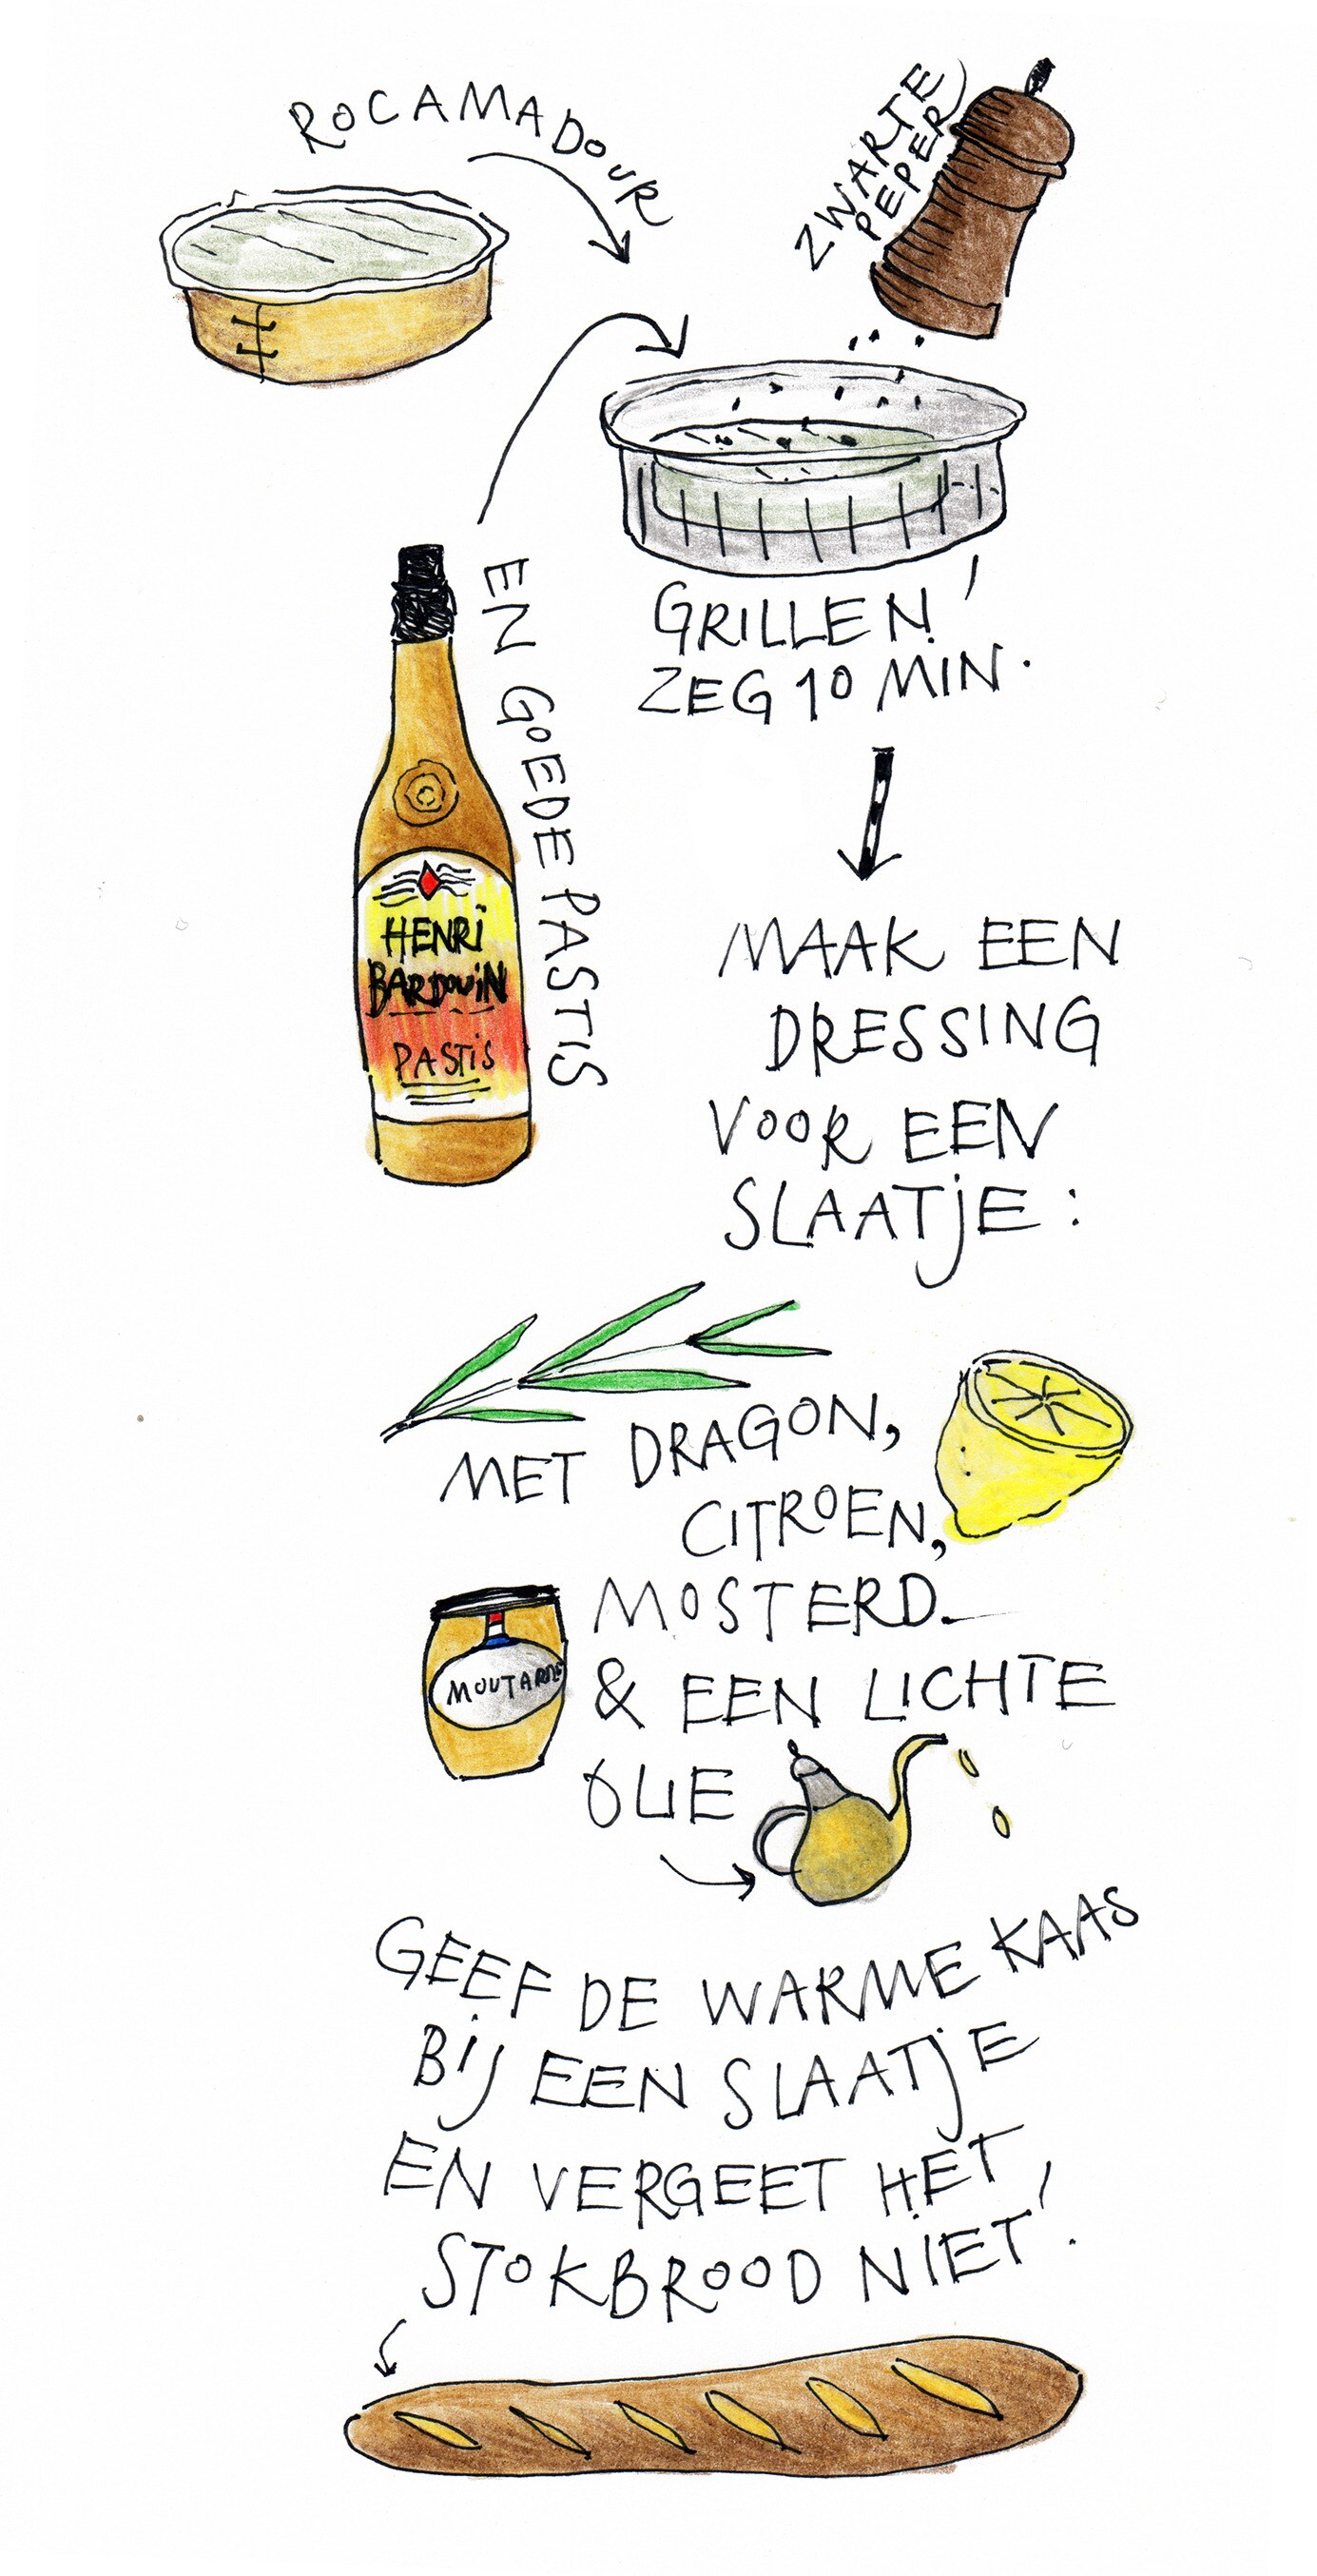 ROCAMADOUR
ZWARTE
PEPER
EN GOEDE PASTIS
HENRI
BARDOUIN
PASTIS
GRILLEN!
ZEG 10 MIN.
MAAK EEN
DRESSING
VOOR EEN
SLAATJE:
MET DRAGON,
CITROEN,
MOSTERD
MOUTARDE
& EEN LICHTE
OLIE
GEEF DE WARME KAAS
BIJ EEN SLAATJE
EN VERGEET HET
STOKBROOD NIET!